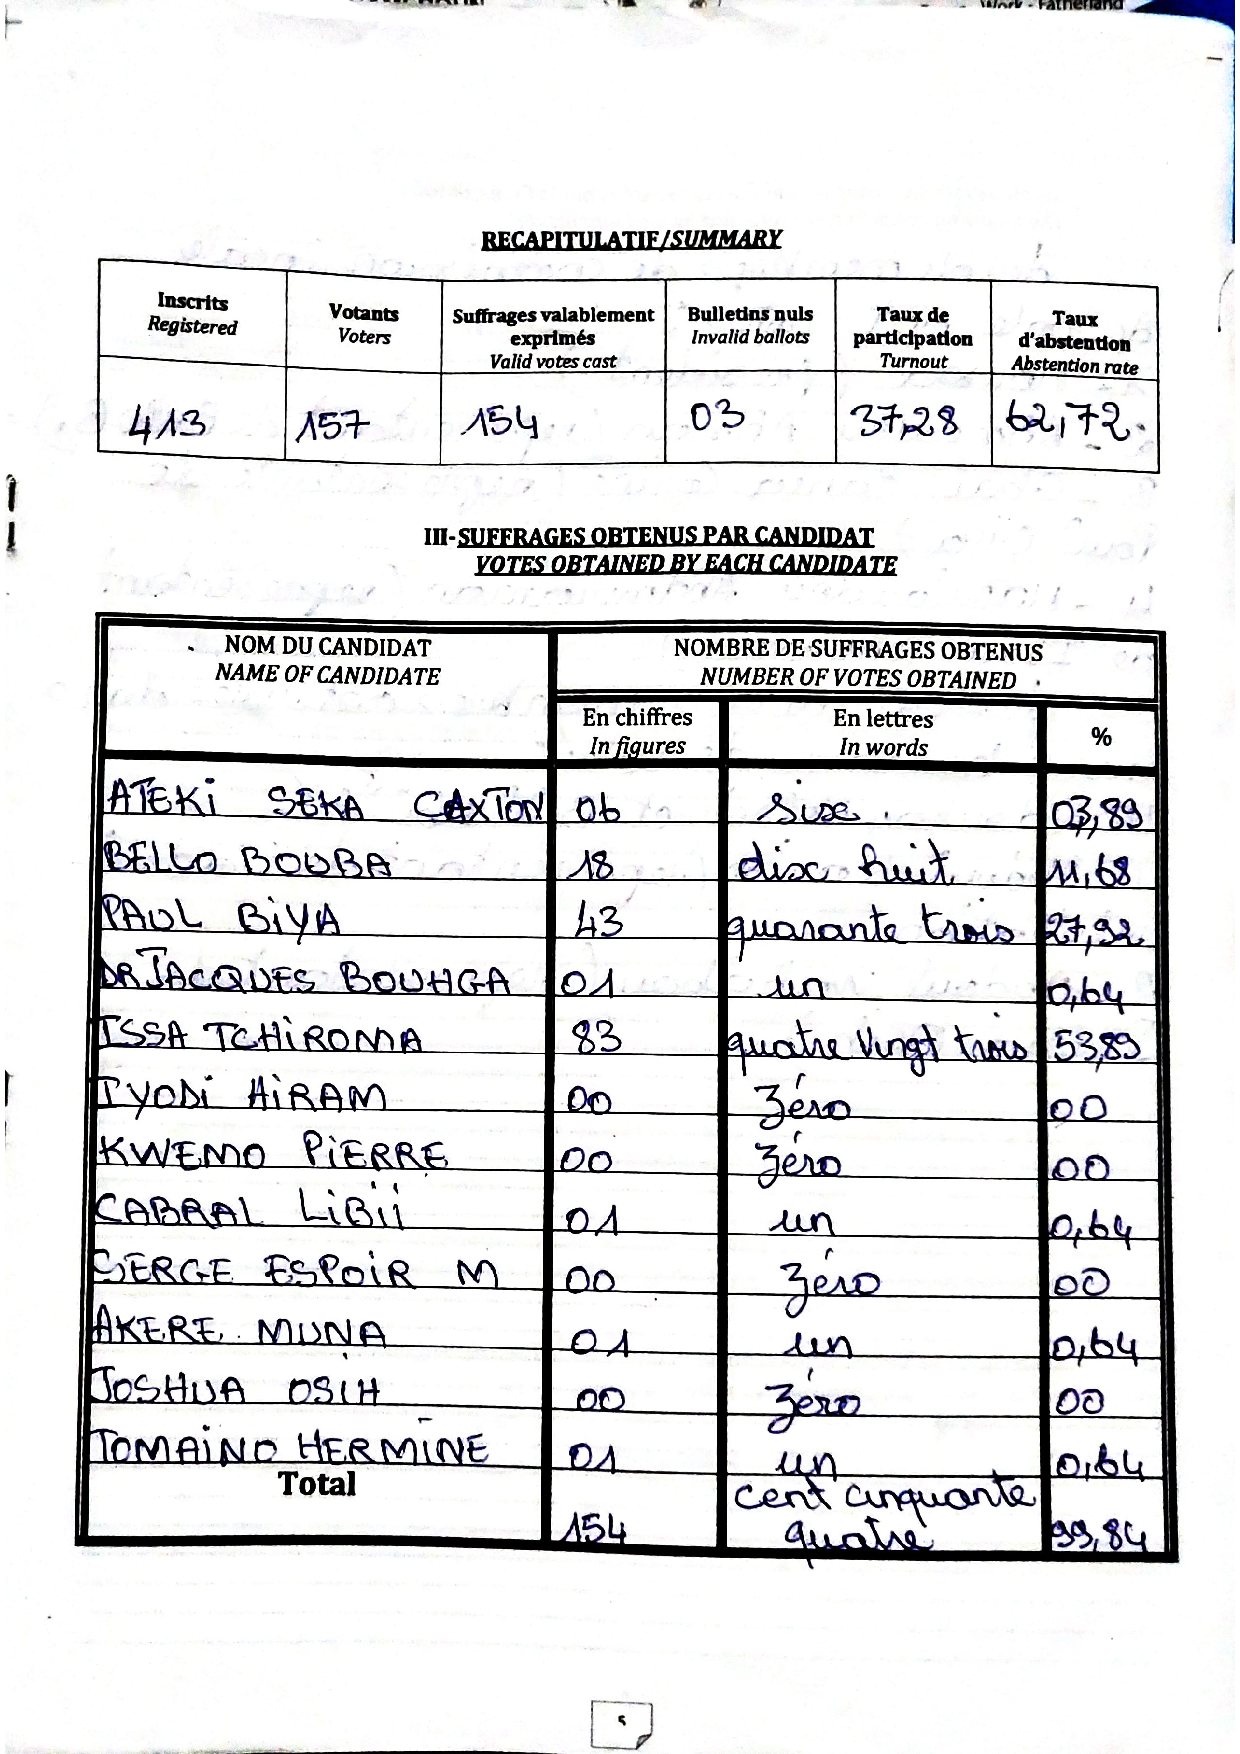 Work - Fatherland
RECAPITULATIF/SUMMARY
Inscrits
Registered
Votants
Voters
Suffrages valablement
exprimés
Valid votes cast
Bulletins nuls
Invalid ballots
Taux de
participation
Turnout
Taux
d'abstention
Abstention rate
413 157 154 03 37,28 62,72
III-SUFFRAGES OBTENUS PAR CANDIDAT
VOTES OBTAINED BY EACH CANDIDATE
NOM DU CANDIDAT
NAME OF CANDIDATE
NOMBRE DE SUFFRAGES OBTENUS
NUMBER OF VOTES OBTAINED
En chiffres
In figures
En lettres
In words
%
ATEKI SEKA CAXTON 06 sixe 03,89
BELLO BOUBA 18 dix huit 11,68
PAUL BIYA 43 quarante trois 27,92
DR JACQUES BOUHGA 01 un 0,64
ISSA TCHIROMA 83 quatre vingt trois 53,89
IYODI HIRAM 00 Zéro 00
KWEMO PIERRE 00 Zéro 00
CABRAL LIBII 01 un 0,64
SERGE ESPOIR M 00 Zéro 00
AKERE MUNA 01 un 0,64
JOSHUA OSIH 00 Zéro 00
TOMAINO HERMINE 01 un 0,64
Total 154 cent cinquante quatre 99,84
5